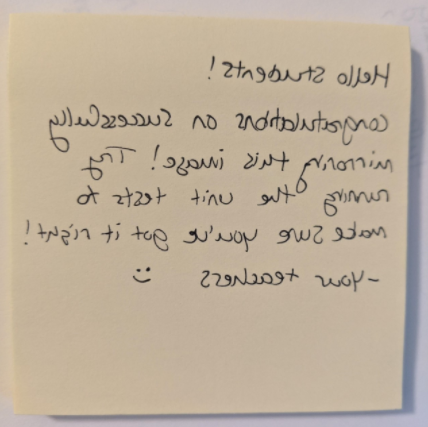 Hello Students!
Congratulations on successfully
mirroring this image! Try
running the unit tests to
make sure you've got it right!
-your teachers :)